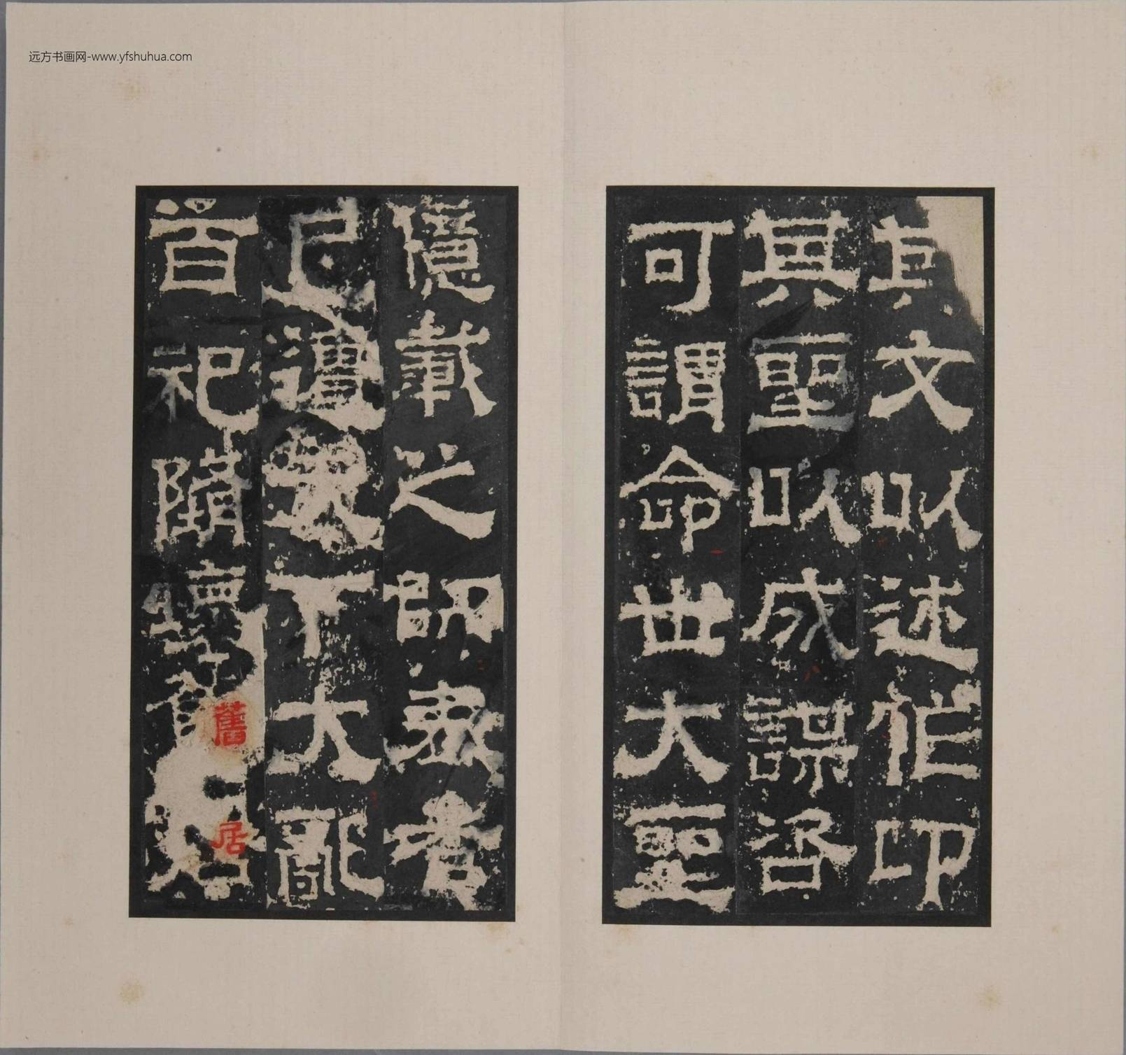 远方书画网-www.yfshuhua.com
其文以述作卬
其聖以成謀咨
可謂命世大聖
億載之師表者
已遭天下大亂
百祀墮壞舊居
舊居